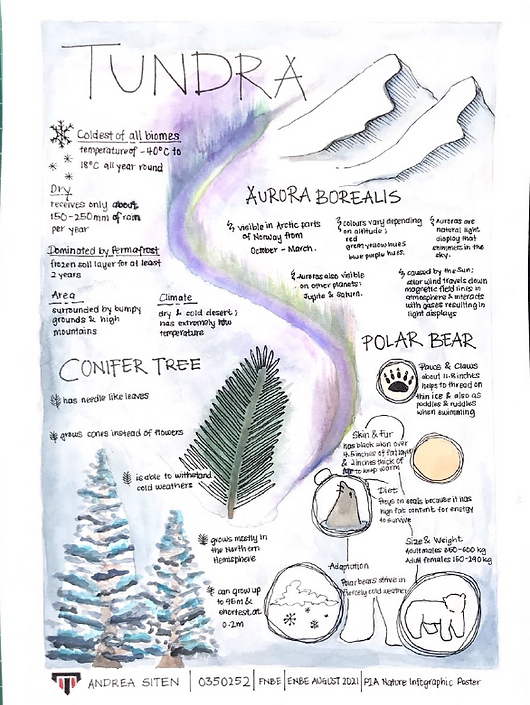 TUNDRA
Coldest of all biomes
temperature of -40°C to
18°C all year round
Dry
receives only about
150-250mm of rain
per year
Dominated by Permafrost
frozen soil layer for at least
2 years
Area
surrounded by bumpy
grounds & high
mountains
Climate
dry & cold desert;
has extremely low
temperature
AURORA BOREALIS
visible in Arctic parts
of Norway from
October - March.
colours vary depending
on altitude;
red
green yellow hues
blue purple hues.
Auroras are
natural light
display that
shimmers in the
sky.
Auroras also visible
on other planets:
Jupite & Saturn.
caused by the Sun;
solar wind travels down
magnetic field lines in
atmosphere & interacts
with gases resulting in
light displays
CONIFER TREE
has needle like leaves
grows cones instead of flowers
is able to withstand
cold weathers
grows mostly in
the Northern
Hemisphere
can grow up
to 95m &
shortest at
0.2m
POLAR BEAR
Paws & Claws
about 11.8 inches
helps to thread on
thin ice & also as
paddles & ruddles
when swimming
Skin & Fur
has black skin over
4.5 inches of fat layer
& 2 inches thick of
fur to keep warm
Diet
Preys on seals because it has
high fat content for energy
to survive
Size & Weight
Adult males 350-600 kg
Adult females 150-290 kg
Adaptation
Polar bears strive in
fiercely cold weather
ANDREA SITEN | 0350252 | FNBE | ENBE AUGUST 2021 | P1A Nature Infographic Poster